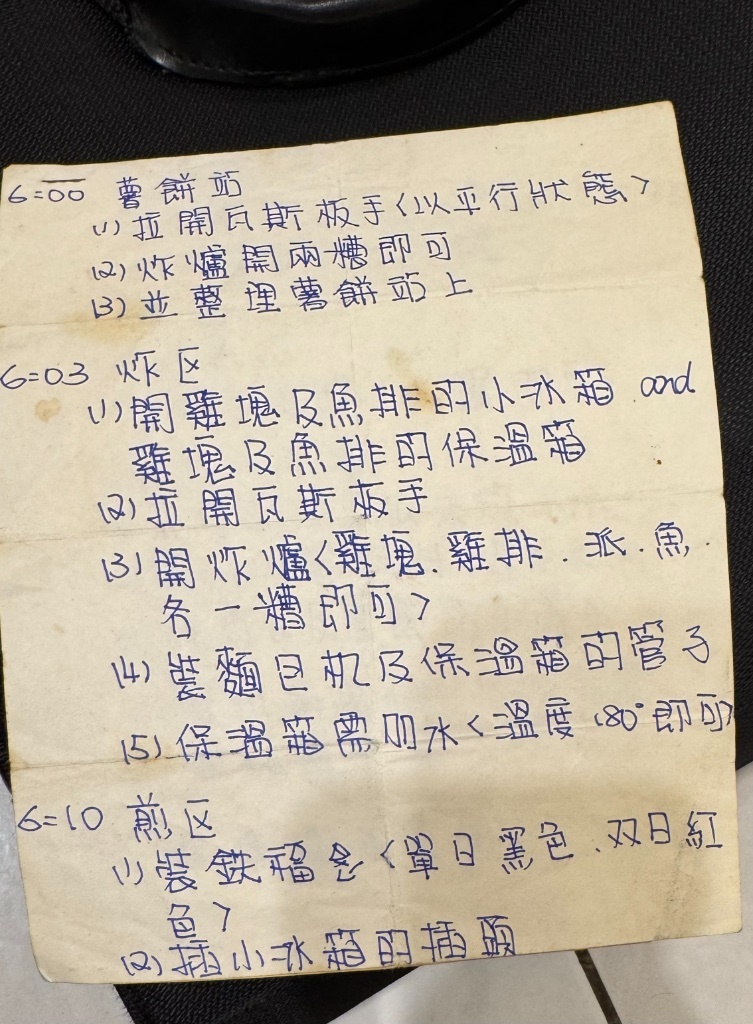 6=00 薯餅站
(1) 拉開瓦斯板手〈以平行狀態〉
(2) 炸爐開兩糟即可
(3) 並整理薯餅站上
6=03 炸区
(1) 開雞塊及魚排的小冰箱 and
雞塊及魚排的保溫箱
(2) 拉開瓦斯板手
(3) 開炸爐〈雞塊.雞排.派.魚.
各一糟即可〉
(4) 裝麵包机及保溫箱的管子
(5) 保溫箱需加水〈溫度180°即可〉
6=10 煎区
(1) 裝鉄福〈單日黑色.双日紅
色〉
(2) 插小冰箱的插頭